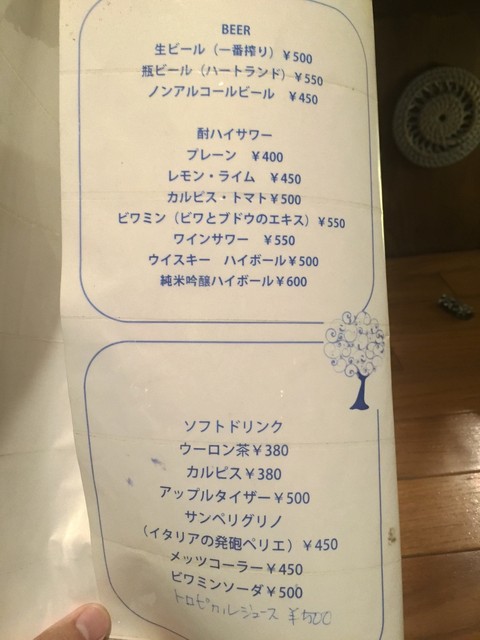 BEER
生ビール（一番搾り）￥500
瓶ビール（ハートランド）￥550
ノンアルコールビール　￥450
酎ハイサワー
プレーン　￥400
レモン・ライム　￥450
カルピス・トマト￥500
ビワミン（ビワとブドウのエキス）￥550
ワインサワー　￥550
ウイスキー　ハイボール￥500
純米吟醸ハイボール￥600
ソフトドリンク
ウーロン茶￥380
カルピス￥380
アップルタイザー￥500
サンペリグリノ
（イタリアの発砲ペリエ）￥450
メッツコーラー￥450
ビワミンソーダ￥500
トロピカルジュース ￥500